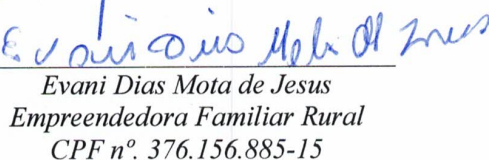 Evani Dias Mota de Jesus
Evani Dias Mota de Jesus
Empreendedora Familiar Rural
CPF nº. 376.156.885-15